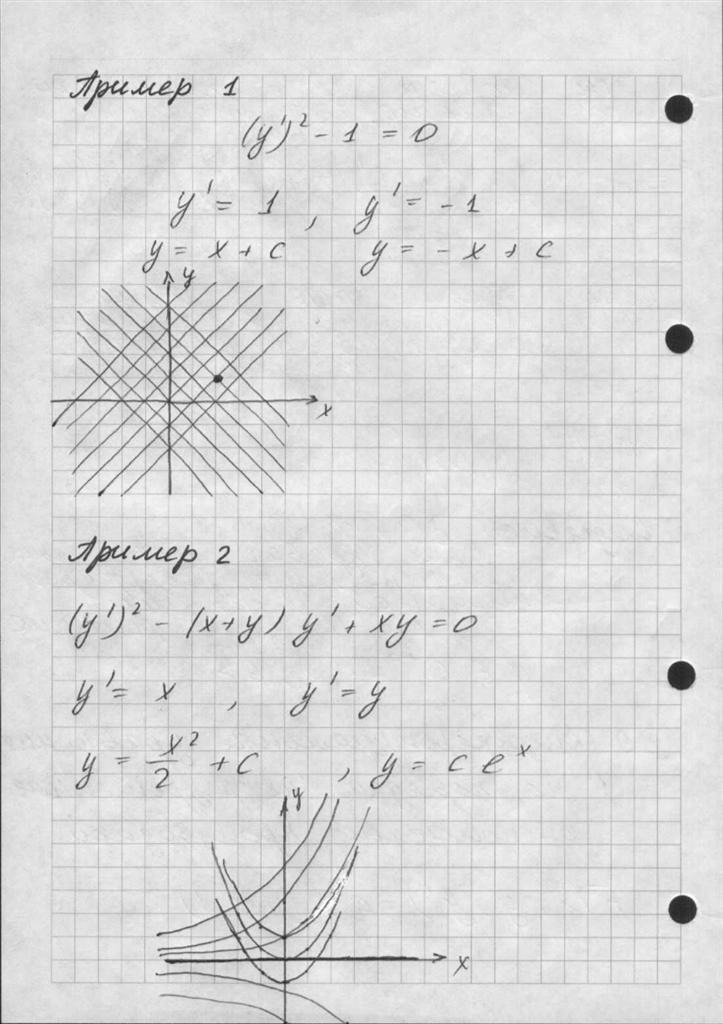 Пример 1
(y')² - 1 = 0
y' = 1 , y' = -1
y = x + c y = - x + c
y
x
Пример 2
(y')² - (x+y) y' + xy = 0
y' = x , y' = y
y = x²/2 + c , y = c eˣ
y
x